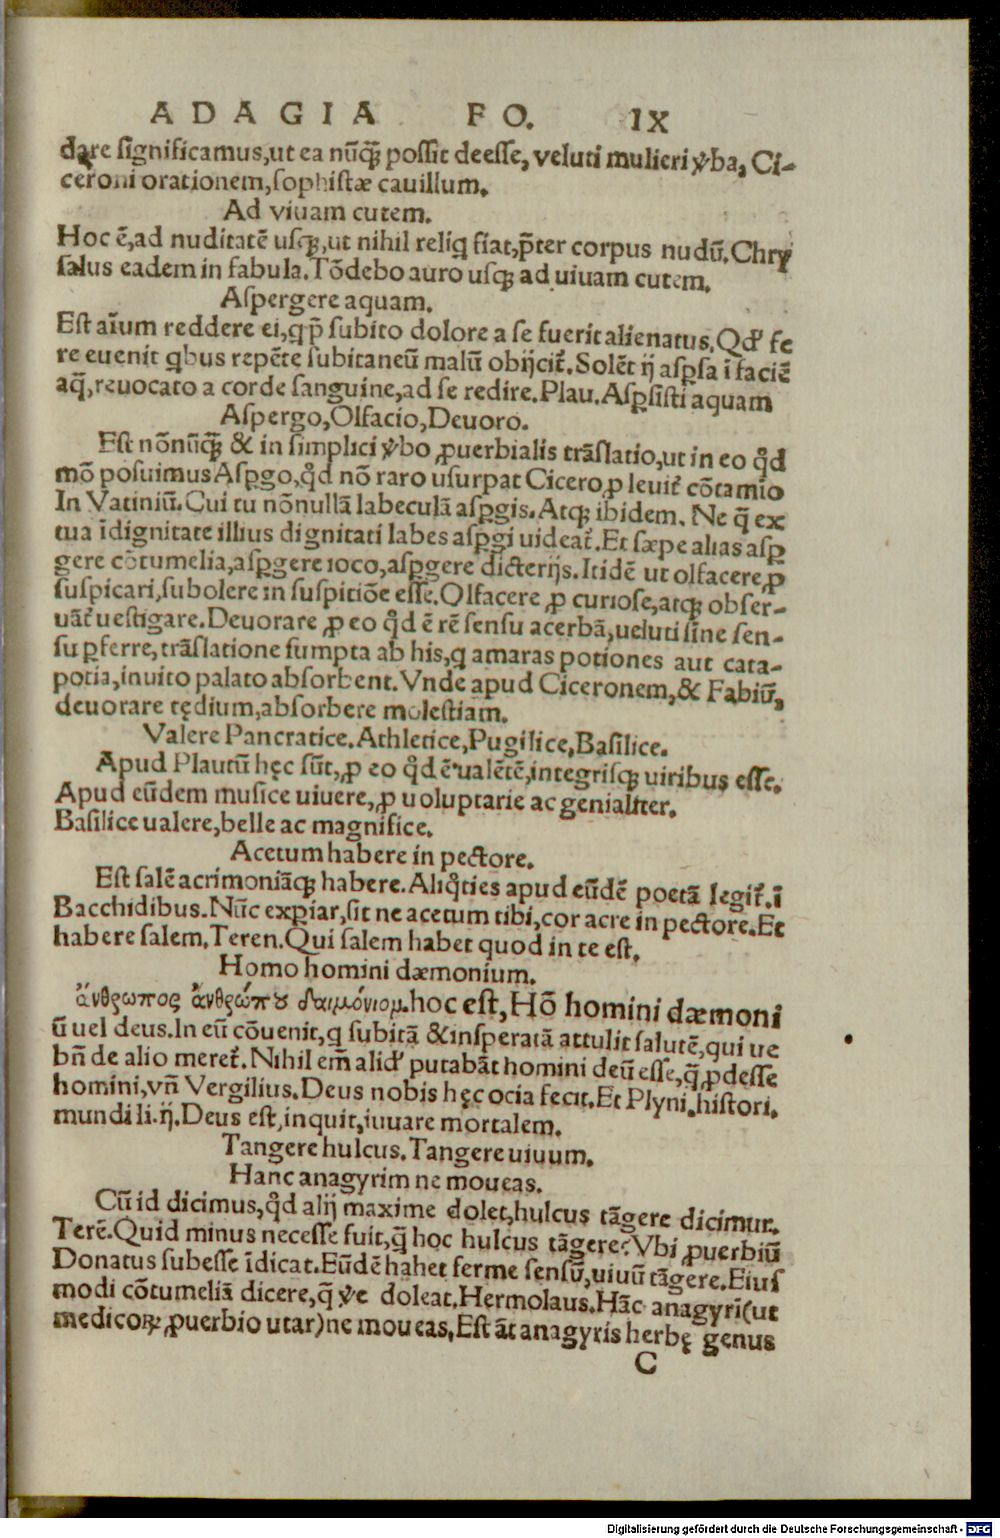 ADAGIA FO. IX
dare significamus,ut ea nūq̃ possit deesse, veluti mulieri ꝟba, Ci-
ceroni orationem,sophistæ cauillum.
Ad viuam cutem.
Hoc ē,ad nuditatē usqꝫ,ut nihil reliq̃ fiat,p̃ter corpus nudū.Chry
salus eadem in fabula.Tōdebo auro usqꝫ ad uiuam cutem.
Aspergere aquam.
Est aīum reddere ei,q p̃ subito dolore a se fuerit alienatus.Qd' fe
re euenit qbus repēte subitaneū malū obijcit̃.Solēt ij aspsa ī faciē
aq̃,reuocato a corde sanguine,ad se redire.Plau.Aspsisti aquam
Aspergo,Olfacio,Deuoro.
Est nōnūq̃ & in simplici ꝟbo ꝓuerbialis trāslatio,ut in eo qd̃
mō posuimus Aspgo,qd̃ nō raro usurpat Cicero ꝓ leuit̃ cōtamīo
In Vatiniū.Cui tu nōnullā labeculā aspgis.Atqꝫ ibidem. Ne q̃ ex
tua īdignitate illius dignitati labes aspgi uideat̃.Et sæpe alias asꝑ
gere cōtumelia,aspgere ioco,aspgere dicterijs.Itidē ut olfacere ꝓ
suspicari,subolere in suspitiōe esse.Olfacere ꝓ curiose,atqꝫ obser-
uāt̃ uestigare.Deuorare ꝓ eo qd̃ ē rē sensu acerbā,ueluti sine sen-
su ꝑferre,trāslatione sumpta ab his,q amaras potiones aut cata-
potia,inuito palato absorbent.Vnde apud Ciceronem,& Fabiū,
deuorare tędium,absorbere molestiam.
Valere Pancratice.Athletice,Pugilice,Basilice.
Apud Plautū hęc sūt,ꝓ eo qd̃ ē ualētē,integrisqꝫ uiribus esse.
Apud eūdem musice uiuere,ꝓ uoluptarie ac genialiter.
Basilice ualere,belle ac magnifice.
Acetum habere in pectore.
Est salē acrimoniāqꝫ habere.Aliq̃ties apud eūdē poetā legit̃.ī
Bacchidibus.Nūc expiar,sit ne acetum tibi,cor acre in pectore.Et
habere salem.Teren.Qui salem habet quod in te est.
Homo homini dæmonium.
ἄνθρωπος ἀνθρώπου δαιμόνιομ.hoc est,Hō homini dæmoni
ū uel deus.In eū cōuenit,q subitā &insperatā attulit salutē,qui ue
bñ de alio meret̃.Nihil em̃ alid' putabāt homini deū esse,q̃ ꝓdesse
homini,vñ Vergilius.Deus nobis hęc ocia fecit.Et Plyni.histori.
mundi li.ij.Deus est,inquit,iuuare mortalem.
Tangere hulcus.Tangere uiuum.
Hanc anagyrim ne moueas.
Cū id dicimus,qd̃ alij maxime dolet,hulcus tāgere dicimur.
Terē.Quid minus necesse fuit,q̃ hoc hulcus tāgere?Vbi ꝓuerbiū
Donatus subesse īdicat.Eūdē habet ferme sensū,uiuū tāgere.Eius
modi cōtumeliā dicere,q̃ ꝟe doleat.Hermolaus.Hāc anagyri(ut
medicoꝝ ꝓuerbio utar)ne moueas,Est āt anagyris herbę genus
C
Digitalisierung gefördert durch die Deutsche Forschungsgemeinschaft - DFG